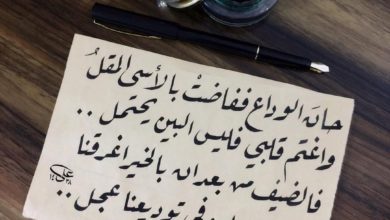 حانَ الوداع ففاضتْ بالأسى المقلُ
واغتم قلبي فليس البين يحتمل ..
فالضيف من بعد ان بالخير اغرقنا
في توديعنا عجل ..